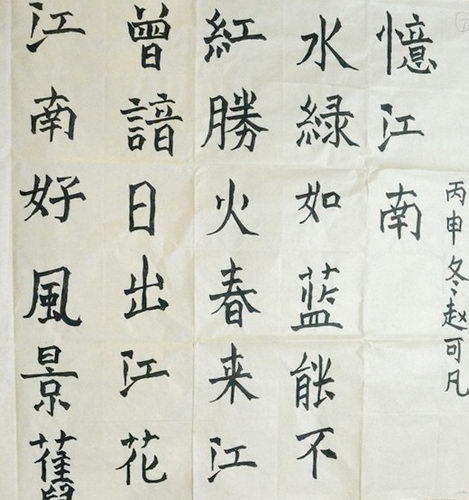 江南好風景舊
曾諳日出江花
紅勝火春来江
水緑如蓝能不
憶江南
丙申冬赵可凡